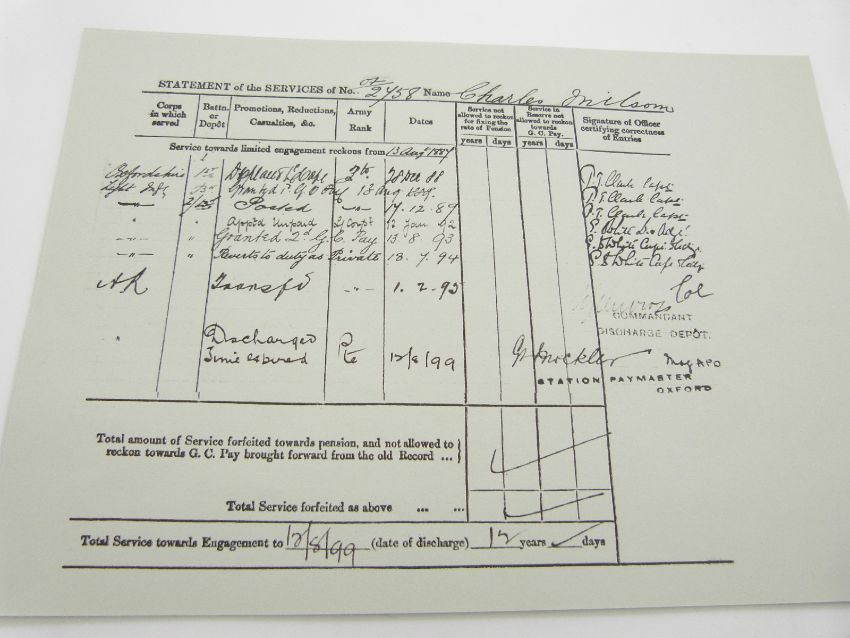 STATEMENT of the SERVICES of No. 2458 Name Charles Milsom
Corps in which served
Battn. or Depôt
Promotions, Reductions, Casualties, &c.
Army Rank
Dates
Service not allowed to reckon for fixing the rate of Pension
Service in Reserve not allowed to reckon towards G. C. Pay.
Signature of Officer certifying correctness of Entries
years days years days
Service towards limited engagement reckons from 13 Aug 1887
Bedfordshire 28 Dec 88 P.T. Clark Capt
Light Infy Granted 1st G C Pay 13 Aug P.T. Clark Capt
Posted 17.12.89 P.T. Clark Capt
" Appd Unpaid L/Corpl 12 Jan 92 S. White
" Granted 2d G.C. Pay 13.8.93 S. S. White Capt
" Reverts to duty as Private 13.7.94 S. S. White Capt
AR Transfd 1.2.95 Col
COMMANDANT
DISCHARGE DEPÔT.
Discharged
Time expired Pte 12/8/99 Mockler Maj APD
STATION PAYMASTER
OXFORD
Total amount of Service forfeited towards pension, and not allowed to
reckon towards G. C. Pay brought forward from the old Record ...
Total Service forfeited as above ... ...
Total Service towards Engagement to 12/8/99 (date of discharge) 12 years days